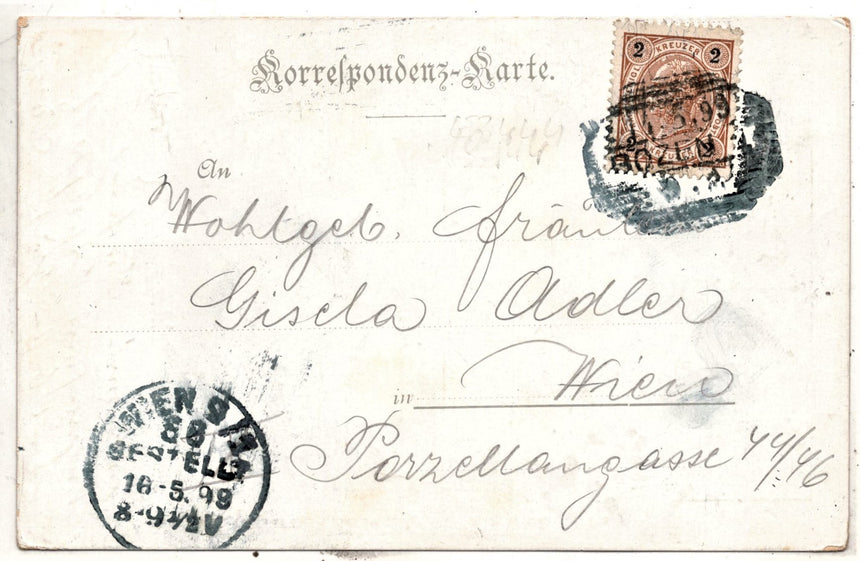 Korrespondenz-Karte.
2 KREUZER 2
5.99
BOZEN
An
Wohlgeb.
Gisela Adler
in Wien
Porzellangasse 44/46
WIEN 9/1
BESTELLT
16.5.99
8-9½V